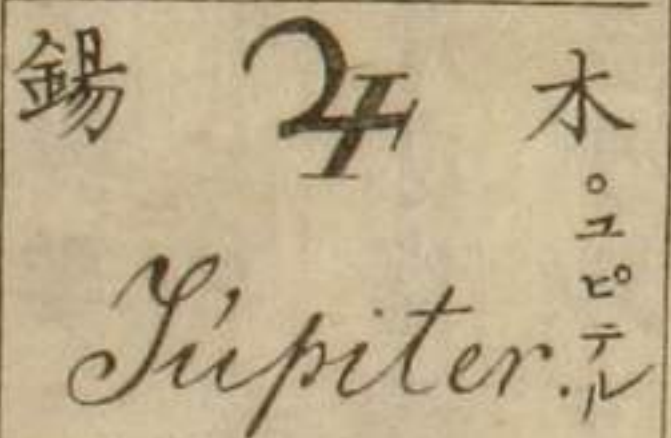 木
。ユピテル
♃
鍚
Júpiter.